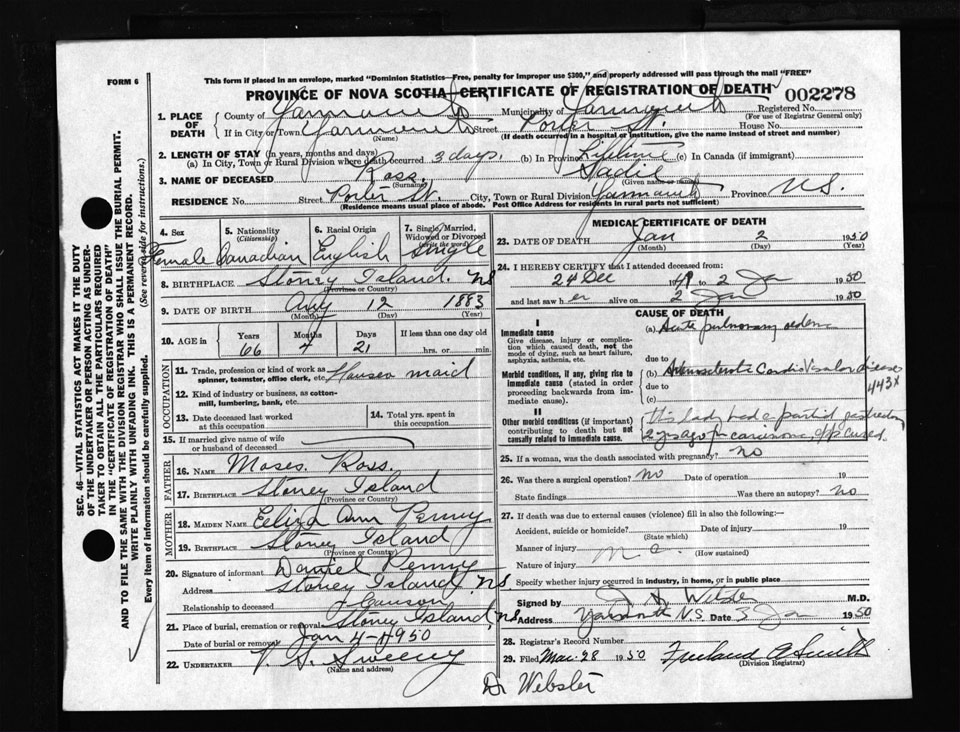 FORM 6
This form if placed in an envelope, marked "Dominion Statistics—Free, penalty for improper use $300," and properly addressed will pass through the mail "FREE"
PROVINCE OF NOVA SCOTIA—CERTIFICATE OF REGISTRATION OF DEATH 002278
1. PLACE OF DEATH
County of Yarmouth Municipality of Yarmouth Registered No.
(For use of Registrar General only)
If in City or Town Yarmouth Street Porter St. House No.
(Name) (If death occurred in a hospital or institution, give the name instead of street and number)
2. LENGTH OF STAY (in years, months and days)
(a) In City, Town or Rural Division where death occurred 3 days. (b) In Province Lifetime (c) In Canada (if immigrant)
3. NAME OF DECEASED Ross. Sadie
(Surname) (Given name or names)
RESIDENCE No. Street Porter St. City, Town or Rural Division Yarmouth Province N.S.
(Residence means usual place of abode. Post Office Address for residents in rural parts not sufficient)
4. Sex 5. Nationality (Citizenship) 6. Racial Origin 7. Single, Married, Widowed or Divorced (write the word)
Female Canadian English Single
8. BIRTHPLACE Stoney Island. NS
(Province or Country)
9. DATE OF BIRTH Aug 12 1883
(Month) (Day) (Year)
10. AGE in Years Months Days If less than one day old
66 4 21 hrs. or min.
OCCUPATION
11. Trade, profession or kind of work as spinner, teamster, office clerk, etc. maid
12. Kind of industry or business, as cotton-mill, lumbering, bank, etc.
13. Date deceased last worked at this occupation
14. Total yrs. spent in this occupation
15. If married give name of wife or husband of deceased
FATHER
16. NAME Moses Ross.
17. BIRTHPLACE Stoney Island
(Province or Country)
MOTHER
18. MAIDEN NAME Eliza Ann Penny
19. BIRTHPLACE Stoney Island
(Province or Country)
20. Signature of informant Daniel Penny
Address Stoney Island, NS
Relationship to deceased
21. Place of burial, cremation or removal Stoney Island, NS
Date of burial or removal Jan 4-1950
22. UNDERTAKER V. S. Sweeny
(Name and address)
MEDICAL CERTIFICATE OF DEATH
23. DATE OF DEATH Jan 2 1950
(Month) (Day) (Year)
24. I HEREBY CERTIFY that I attended deceased from:
24 Dec 1949 to 2 Jan 1950
and last saw her alive on 2 Jan 1950
CAUSE OF DEATH
I
Immediate cause
Give disease, injury or complication which caused death, not the mode of dying, such as heart failure, asphyxia, asthenia, etc.
(a) Acute pulmonary edema
due to
Morbid conditions, if any, giving rise to immediate cause (stated in order proceeding backwards from immediate cause).
(b) Cardio Vascular disease
due to
443X
(c)
II
Other morbid conditions (if important) contributing to death but not causally related to immediate cause.
this lady had a partial gastrectomy
2 yrs ago for carcinoma,
25. If a woman, was the death associated with pregnancy? no
26. Was there a surgical operation? no Date of operation 19
State findings Was there an autopsy? no
27. If death was due to external causes (violence) fill in also the following:—
Accident, suicide or homicide? Date of injury 19
(State which)
Manner of injury
(How sustained)
Nature of injury
Specify whether injury occurred in industry, in home, or in public place
Signed by M.D.
Address Yarmouth N.S. Date 3 Jan 1950
28. Registrar's Record Number
29. Filed Mar. 28 1950
(Division Registrar)
Dr Webster
SEC. 46—VITAL STATISTICS ACT MAKES IT THE DUTY OF THE UNDERTAKER OR PERSON ACTING AS UNDERTAKER TO OBTAIN ALL THE PARTICULARS REQUIRED IN THE "CERTIFICATE OF REGISTRATION OF DEATH" AND TO FILE THE SAME WITH THE DIVISION REGISTRAR WHO SHALL ISSUE THE BURIAL PERMIT.
WRITE PLAINLY WITH UNFADING INK. THIS IS A PERMANENT RECORD.
Every item of information should be carefully supplied. (See reverse side for instructions.)